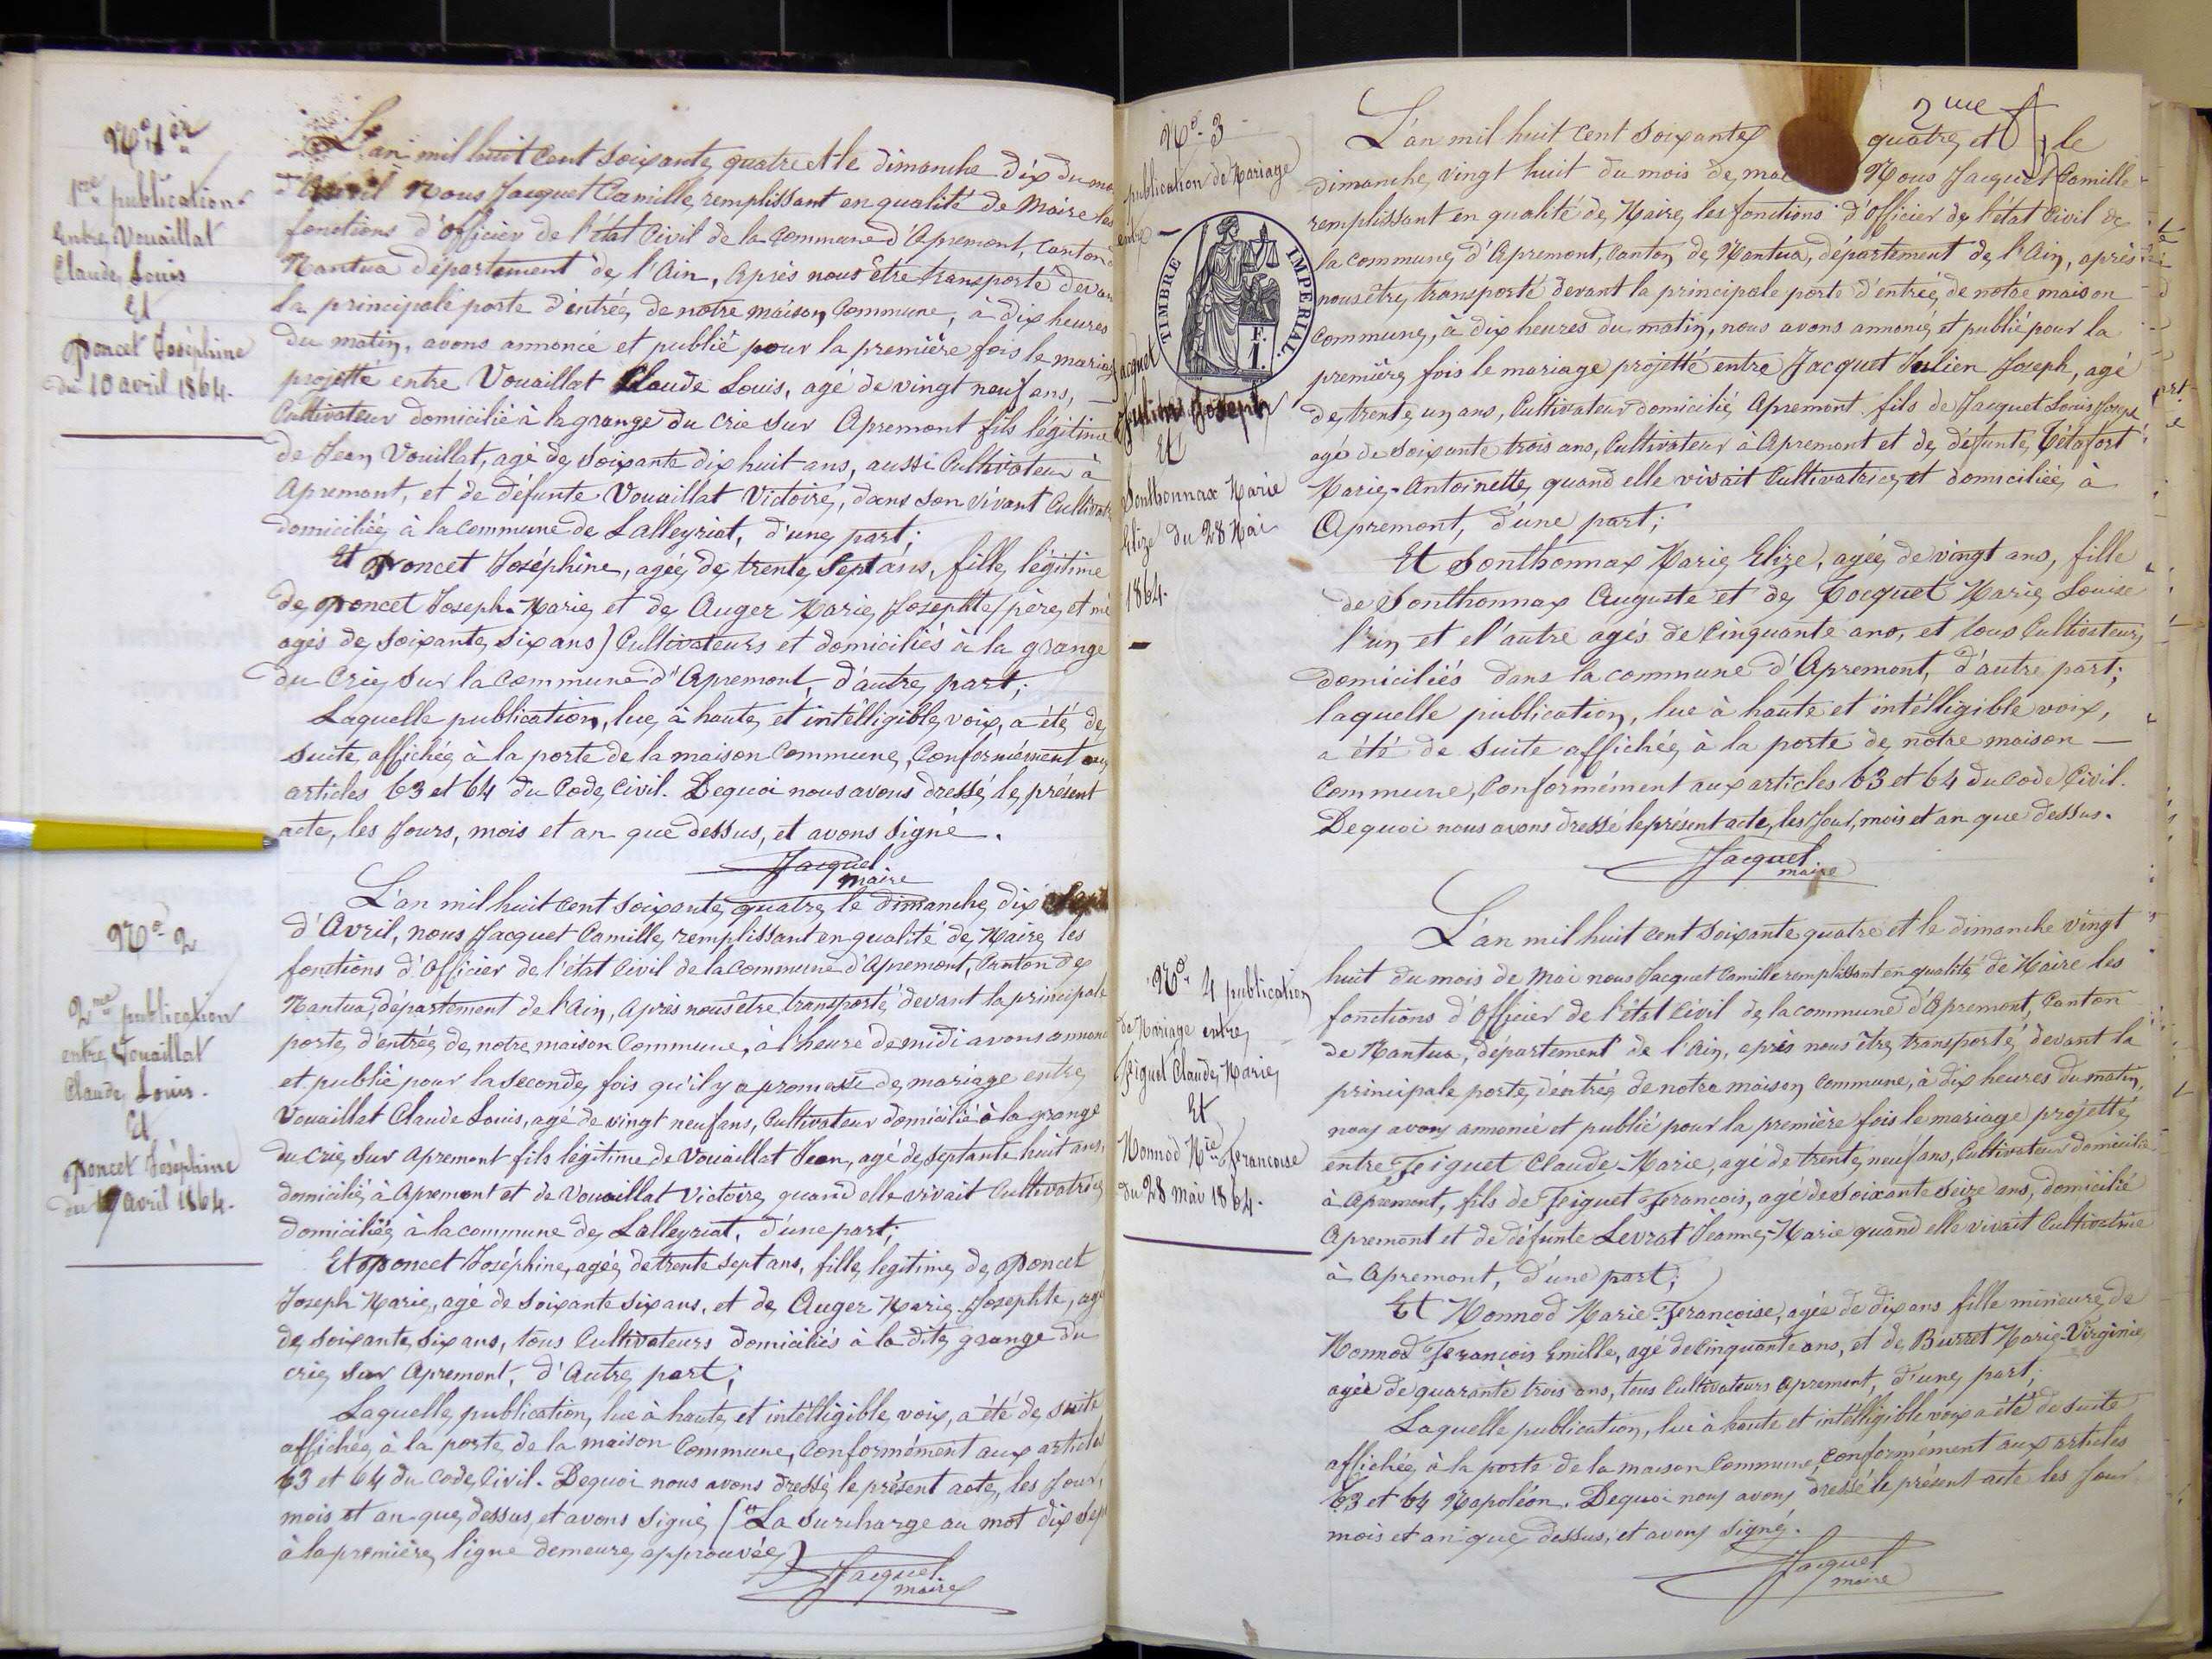 No 1er
1re publication
Entre Vouaillat
Claude Louis
Et
Poncet Joséphine
du 10 avril 1864.
L'an mil huit cent soixante quatre et le dimanche dix du
d'Avril Nous Jacquet Camille, remplissant en qualité de Maire les
fonctions d'Officier de l'état Civil de la Commune d'Apremont, Canton
Nantua département de l'Ain, Après nous être transporté devan
la principale porte d'entrée de notre maison Commune, à dix heures
du matin, avons annoncé et publié pour la première fois le mariage
projetté entre Vouaillat Claude Louis, agé de vingt neuf ans, —
Cultivateur domicilié à la grange du Crie sur Apremont fils légitime
de Jean Vouillat, agé de soixante dix huit ans, aussi Cultivateur à
Apremont, et de défunte Vouaillat Victoire, dans son vivant Cultivat
domiciliée à la commune de Lalleyriat, d'une part;
Et Poncet Joséphine, agée de trente sept ans, fille légitime
de Poncet Joseph-Marie et de Auger Marie Josephte (père et mè
agés de soixante six ans) Cultivateurs et domiciliés à la grange
du Crie sur la commune d'Apremont, d'autre part;
Laquelle publication, lue à haute et intélligible voix, a été de
suite affichée à la porte de la maison Commune, Conformément aux
articles 63 et 64 du Code Civil. Dequoi nous avons dressé le présent
acte, les Jours, mois et an que dessus, et avons signé.
Jacquet
maire
No 2
2me publication
entre Vouaillat
Claude Louis.
Et
Poncet Joséphine
du 17 avril 1864.
L'an mil huit cent soixante quatre le dimanche dix sept
d'Avril, nous Jacquet Camille, remplissant en qualité de Maire les
fonctions d'Officier de l'état Civil de la Commune d'Apremont, Canton de
Nantua, département de l'Ain, Après nous être transporté devant la principale
porte d'entrée de notre maison Commune, à l'heure de midi avons annoncé
et publié pour la seconde fois qu'il y a promesse de mariage entre
Vouaillat Claude Louis, agé de vingt neuf ans, Cultivateur domicilié à la grange
du Crie sur Apremont fils légitime de Vouaillat Jean, agé de septante huit ans,
domicilié à Apremont et de Vouaillat Victoire, quand elle vivait Cultivatrice
domiciliée à la commune de Lalleyriat, d'une part;
Et Poncet Joséphine, agée de trente sept ans, fille legitime de Poncet
Joseph Marie, agé de soixante six ans, et de Auger Marie-Josephte, agé
de soixante six ans, tous Cultivateurs domiciliés à la dite grange du
crie sur Apremont, d'Autre part;
Laquelle publication, lue à haute et intélligible voix, a été de suite
affichée à la porte de la maison Commune, Conformément aux articles
63 et 64 du Code Civil. Dequoi nous avons dressé le présent acte, les Jour,
mois et an que dessus, et avons signé (La surcharge au mot dix sept
à la première ligne demeure approuvée)
Jacquet
maire
No 3
publication de Mariage
entre —
TIMBRE IMPERIAL.
F. 1.
Jacquet
Julien Joseph
Et
Sonthonnax Marie
Elize du 28 Mai
1864.
2me
L'an mil huit cent soixante quatre et le
dimanche vingt huit du mois de mai Nous Jacquet Camille
remplissant en qualité de Maire les fonctions d'Officier de l'état Civil de
la commune d'Apremont, Canton de Nantua, département de l'Ain, après
nous être transporté devant la principale porte d'entrée de notre maison
Commune, à dix heures du matin, nous avons annoncé et publié pour la
première fois le mariage projetté entre Jacquet Julien Joseph, agé
de trente un ans, Cultivateur domicilié Apremont fils de Jacquet Louis Joseph
agé de soixante trois ans, Cultivateur à Apremont et de défunte Tétafort
Marie-Antoinette, quand elle vivait Cultivatrice et domiciliée à
Apremont, d'une part;
Et Sonthonnax Marie Elize, agée de vingt ans, fille
de Sonthonnax Auguste et de Tocquet Marie Louise
l'un et el'autre agés de Cinquante ans, et tous Cultivateurs
domiciliés dans la commune d'Apremont, d'autre part;
laquelle publication, lue à haute et intélligible voix,
a été de suite affichée à la porte de notre maison —
Commune, Conformément aux articles 63 et 64 du Code Civil.
Dequoi nous avons dressé le présent acte, les Jour, mois et an que dessus.
Jacquet
maire
No 4 publication
de Mariage entre
Figuet Claude Marie
Et
Monnod Mie Francoise
du 28 mai 1864.
L'an mil huit cent soixante quatre et le dimanche vingt
huit du mois de Mai nous Jacquet Camille remplissant en qualité de Maire les
fonctions d'Officier de l'état Civil de la commune d'Apremont, Canton
de Nantua, département de l'Ain, après nous être transporté devant la
principale porte d'entrée de notre maison Commune, à dix heures du matin,
nous avons annoncé et publié pour la première fois le mariage projetté
entre Figuet Claude-Marie, agé de trente neuf ans, Cultivateur domicilié
à Apremont, fils de Figuet François, agé de soixante seize ans, domicilié
Apremont et de défunte Levrat Jeanne-Marie quand elle vivait Cultivatrice
à Apremont, d'une part;
Et Monnod Marie-Francoise, agée de dix ans fille mineure de
Monnod François Emille, agé de Cinquante ans, et de Burret Marie-Virginie
agée de quarante trois ans, tous Cultivateurs Apremont, d'une part;
Laquelle publication, lue à haute et intélligible voix a été de suite
affichée à la porte de la maison Commune, Conformément aux articles
63 et 64 Napoléon. Dequoi nous avons dressé le présent acte les Jour
mois et an que dessus, et avons signé.
Jacquet
maire